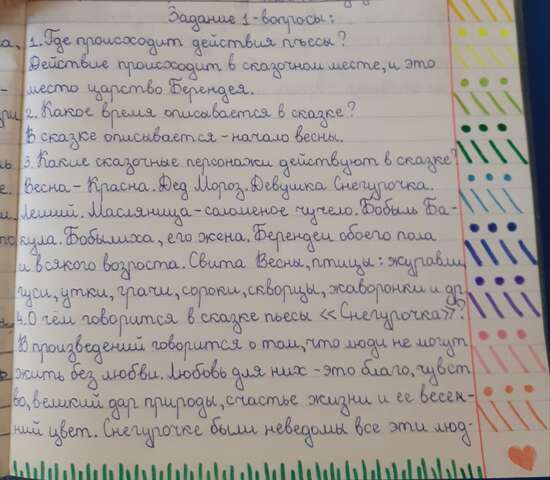 Задание 1-вопросы:
1. Где происходит действия пьесы?
Действие происходит в сказочном месте, и это
место царство Берендея.
2. Какое время описывается в сказке?
В сказке описывается - начало весны.
3. Какие сказочные персонажи действуют в сказке?
Весна - Красна. Дед Мороз. Девушка Снегурочка.
Леший. Масляница - соломеное чучело. Бобыль Ба-
кула. Бобылиха, его жена. Берендеи обоего пола
и всякого возроста. Свита Весны, птицы: журавли,
гуси, утки, грачи, сороки, скворцы, жаворонки и др.
4. О чём говорится в сказке пьесы «Снегурочка»?
В произведений говорится о том, что люди не могут
жить без любви. Любовь для них - это благо, чувст
во, великий дар природы, счастье жизни и ее весен-
ний цвет. Снегурочке были неведомы все эти люд-